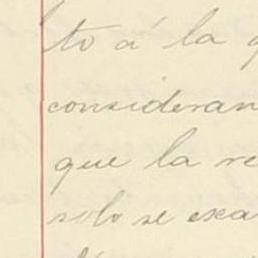 to á la
consideran
que la re
solo se exa